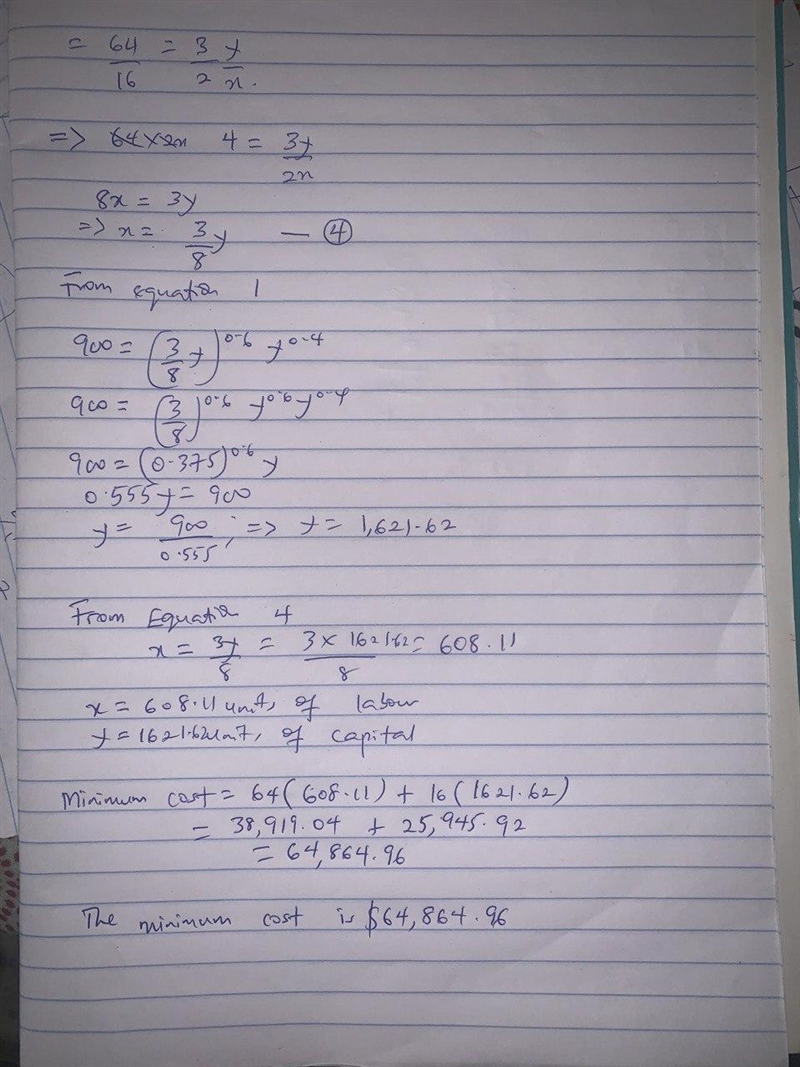 = 64/16 = 3/2 y/x.
=> 64 x 2x 4 = 3y/2x
8x = 3y
=> x = 3/8 y — ④
From equation 1
900 = (3/8 y)^0.6 y^0.4
900 = (3/8)^0.6 y^0.6 y^0.4
900 = (0.375)^0.6 y
0.555y = 900
y = 900/0.555 ; => y = 1,621.62
From Equation 4
x = 3y/8 = 3 x 1621.62/8 = 608.11
x = 608.11 units of labour
y = 1621.62 units of capital
Minimum cost = 64(608.11) + 16(1621.62)
= 38,919.04 + 25,945.92
= 64,864.96
The minimum cost is $64,864.96